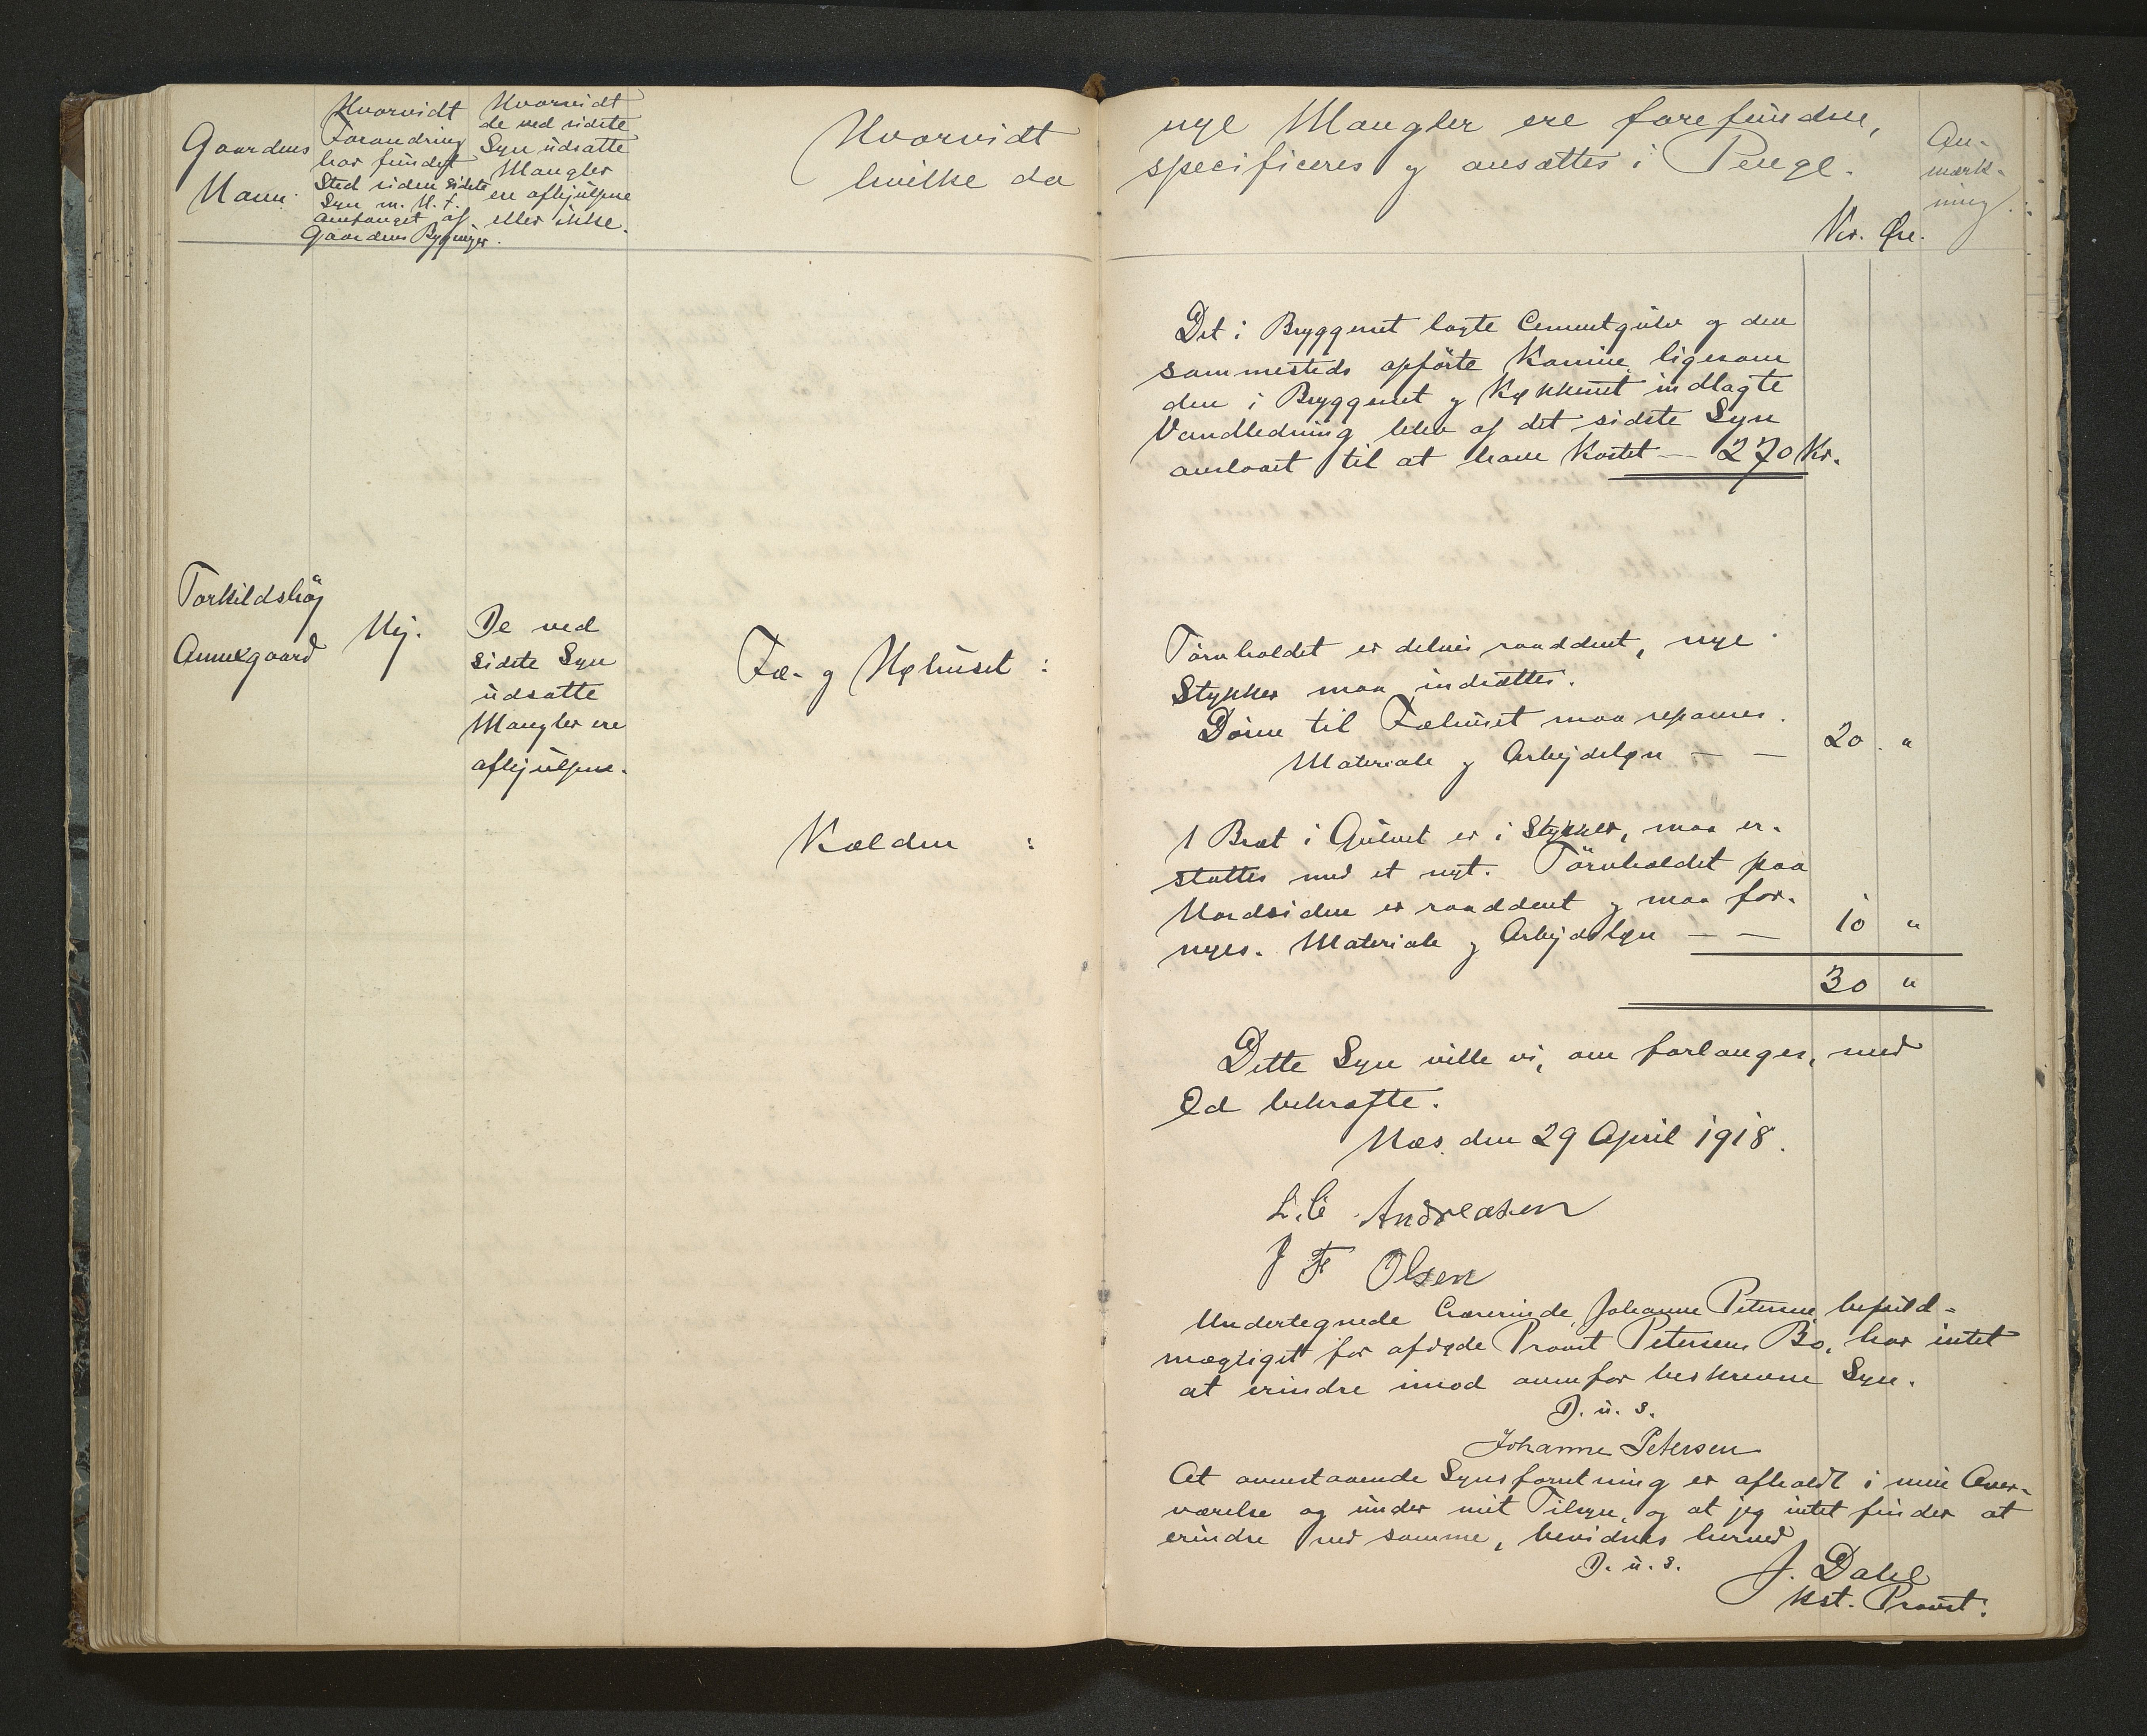 Gaardens
Navn.
Hvorvidt
Forandring
har fundet
Sted siden sidste
Syn m. H. t.
Omfanget af
Gaardens Bygninger.
Hvorvidt
de ved sidste
Syn udsatte
Mangler
ere afhjulpne
eller ikke.
Hvorvidt
hvilke da
nye Mangler ere forefundne,
specificeres og ansættes i Penge.
Kr. Øre.
An-
mærk-
ning.
Det i Bryggeriet lagte Cementgulv og den
sammesteds opförte Kamine, ligesom
den i Bryggeriet og Køkkenet indlagte
Vandledning blev af det sidste Syn
anslaaet til at have kostet — 270 Kr.
Torkildshöj
Annexgaard
Nej.
De ved
sidste Syn
udsatte
Mangler ere
afhjulpne.
Fæ- og Høhuset :
Törvholdet er delvis raaddent, nye
Stykker maa indsættes.
Dören til Fæhuset maa repareres.
Materiale og Arbejdsløn — — 20 . "
Kælderen :
1 Bræt i Gulvet er i Stykker, maa er-
stattes med et nyt. Törvholdet paa
Nordsiden er raaddent og maa for-
nyes. Materiale og Arbejdsløn — — 10 "
30 "
Dette Syn ville vi, om forlanges, med
Ed bekræfte.
Næs, den 29 April 1918.
L. C. Andreasen
J F Olsen
Undertegnede Lærerinde, Johanne Petersen, befuld-
mægtiget for afdøde Provst Petersens Bo, har intet
at erindre imod ovenfor beskrevne Syn.
D. u. s.
Johanne Petersen
At ovenstaaende Synsforretning er afholdt i min Over-
værelse og under mit Tilsyn, og at jeg intet finder at
erindre ved samme, bevidnes herved
D. u. s.
J. Dahl
kst. Provst.